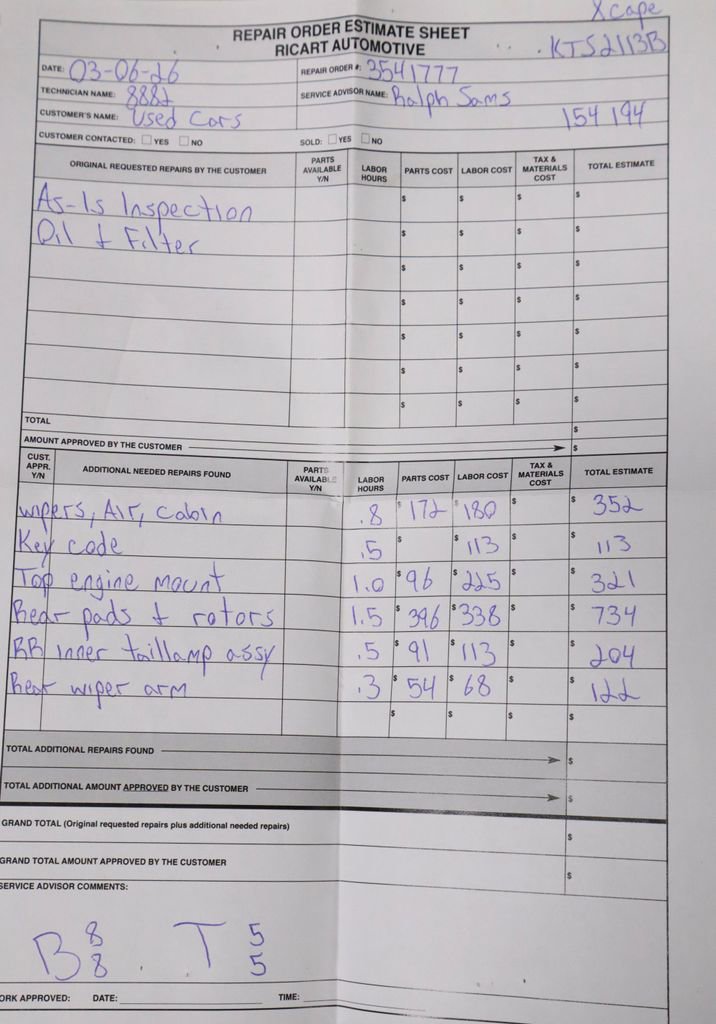 Xcape
REPAIR ORDER ESTIMATE SHEET
RICART AUTOMOTIVE
KTS2113B
DATE: 03-06-26 REPAIR ORDER #: 3541777
TECHNICIAN NAME: 8882 SERVICE ADVISOR NAME: Ralph Sams
CUSTOMER'S NAME: Used Cars 154 194
CUSTOMER CONTACTED: YES NO SOLD: YES NO
ORIGINAL REQUESTED REPAIRS BY THE CUSTOMER PARTS AVAILABLE Y/N LABOR HOURS PARTS COST LABOR COST TAX & MATERIALS COST TOTAL ESTIMATE
As-Is Inspection $ $ $ $
Oil + Filter $ $ $ $
$ $ $ $
$ $ $ $
$ $ $ $
$ $ $ $
$ $ $ $
TOTAL $
AMOUNT APPROVED BY THE CUSTOMER $
CUST. APPR. Y/N ADDITIONAL NEEDED REPAIRS FOUND PARTS AVAILABLE Y/N LABOR HOURS PARTS COST LABOR COST TAX & MATERIALS COST TOTAL ESTIMATE
wipers, Air, cabin .8 $172 $180 $ $352
Key code .5 $ $113 $ $113
Top engine mount 1.0 $96 $225 $ $321
Rear pads + rotors 1.5 $396 $338 $ $734
RR inner taillamp assy .5 $91 $113 $ $204
Rear wiper arm .3 $54 $68 $ $122
$ $ $ $
TOTAL ADDITIONAL REPAIRS FOUND $
TOTAL ADDITIONAL AMOUNT APPROVED BY THE CUSTOMER $
GRAND TOTAL (Original requested repairs plus additional needed repairs) $
GRAND TOTAL AMOUNT APPROVED BY THE CUSTOMER $
SERVICE ADVISOR COMMENTS:
B 8 8 T 5 5
ORK APPROVED: DATE: TIME: